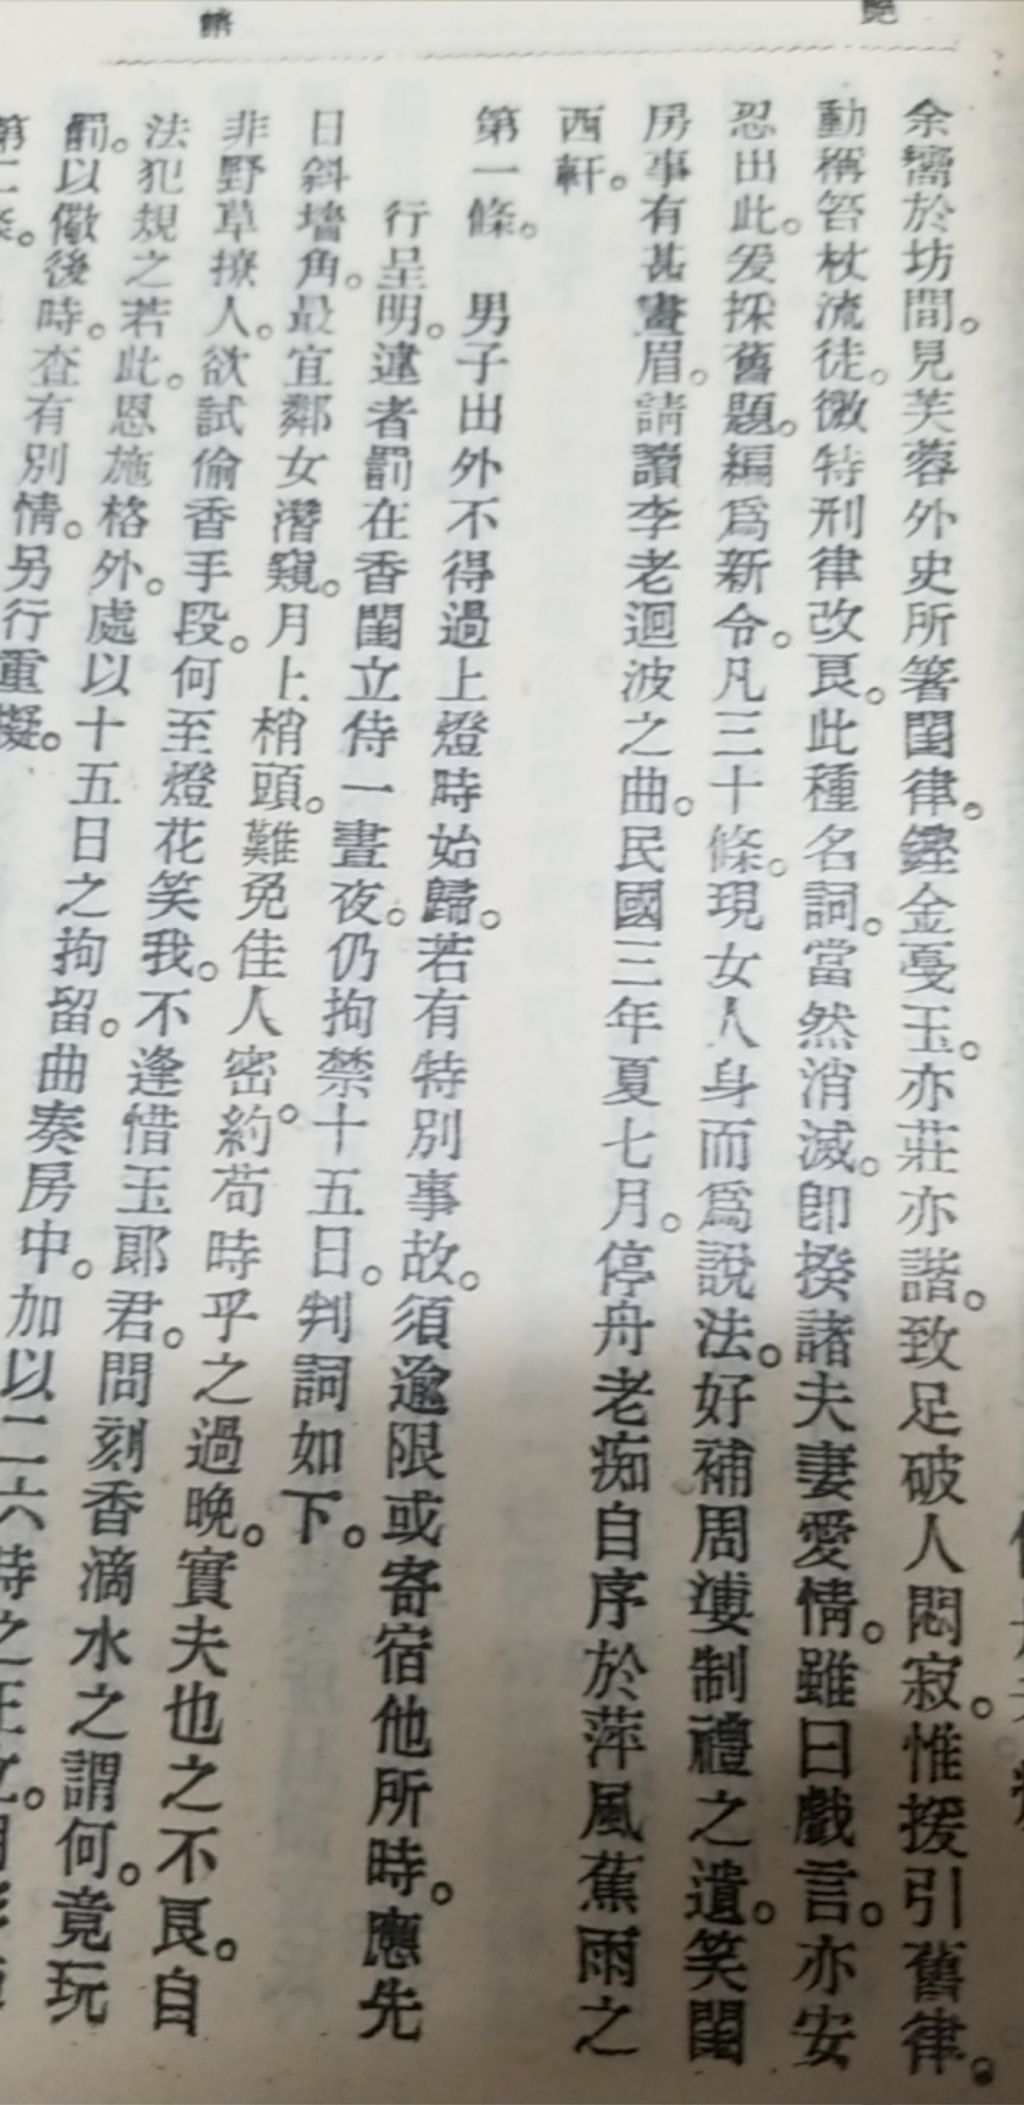 艷
余嚮於坊間。見芙蓉外史所箸閨律。鏗金戞玉。亦莊亦諧。致足破人悶寂。惟援引舊律。
動稱笞杖流徒。微特刑律改良。此種名詞。當然消滅。卽揆諸夫妻愛情。雖曰戲言。亦安
忍出此。爰採舊題。編爲新令。凡三十條。現女人身而爲說法。好補周婆制禮之遺。笑閨
房事有甚畫眉。請讀李老迴波之曲。民國三年夏七月。停舟老痴自序於萍風蕉雨之
西軒。
第一條。男子出外不得過上燈時始歸。若有特別事故。須逾限或寄宿他所時。應先
行呈明。違者罰在香閨立侍一晝夜。仍拘禁十五日。判詞如下。
日斜墻角。最宜鄰女潛窺。月上梢頭。難免佳人密約。苟時乎之過晚。實夫也之不良。自
非野草撩人。欲試偷香手段。何至燈花笑我。不逢惜玉郞君。問刻香滴水之謂何。竟玩
法犯規之若此。恩施格外。處以十五日之拘留。曲奏房中。加以二六時之
罰。以儆後時。查有別情。另行重擬。